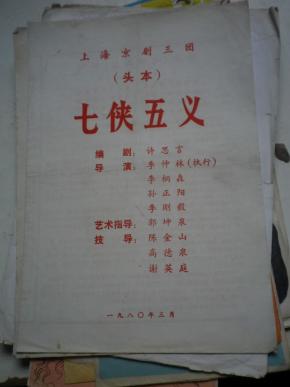 上海京剧三团
（头本）
七侠五义
编剧：许思言
导演：李仲林(执行)
李桐森
孙正阳
李刚毅
艺术指导：郭坤泉
技导：陈金山
高德泉
谢英庭
一九八〇年三月